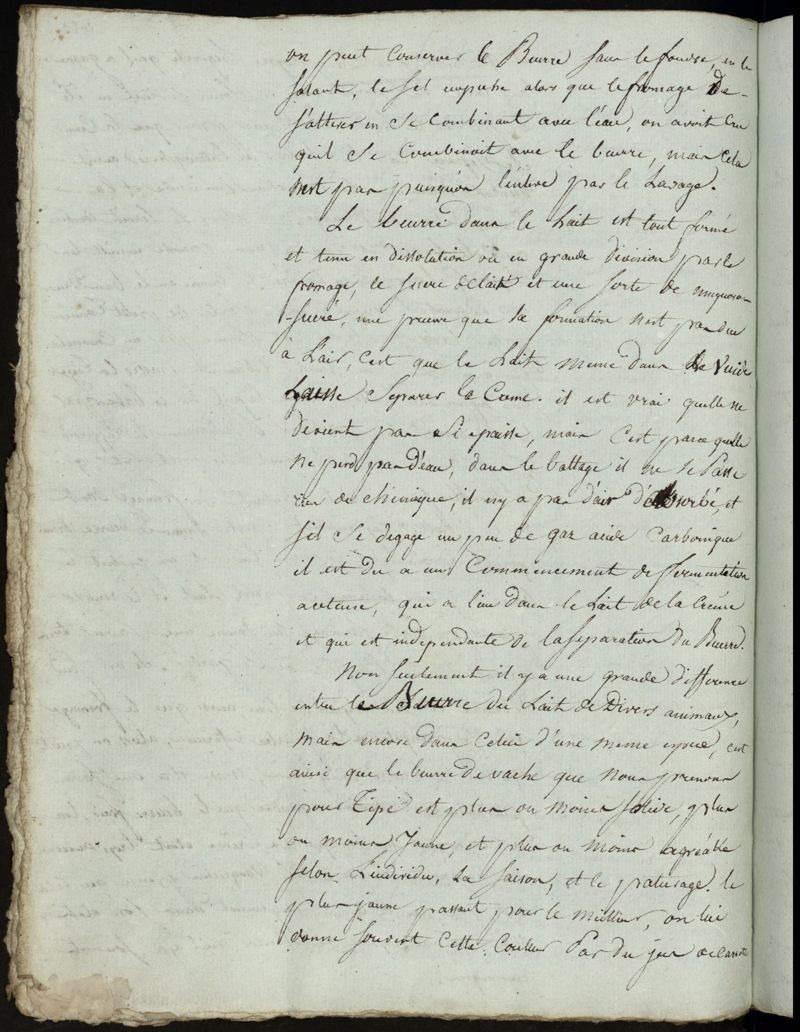 on peut Conserver le Beurre sans le fondre, en le
salant, le sel empêche alors que le fromage De
s'alterer en se combinant avec l'eau, on avoit cru
quil se Combinoit avec le beurre, mais Cela
n'est pas puisqu'on l'enleve par le Lavage.
Le beurre dans le Lait est tout formé
et tenu en dissolution ou en grande division par le
fromage, le sucre de lait et une sorte de muquoso-
-sucré, une preuve que sa formation n'est pas due
à Lair, C'est que le Lait meme dans le Vuide
Laisse Separer la Creme. il est vrai quelle ne
devient pas si epaisse, mais C'est parce quelle
ne perd pas d'eau, dans le battage il ne se Passe
rien de chimique, il n'y a pas d'air d'absorbé, et
s'il se degage un peu de gaz acide Carbonique
il est du a un Commencement de fermentation
aceteuse, qui a lieu dans le Lait de la Creme
et qui est independante de la separation du Beurre.
Non seulement il y a une grande difference
entre le Beurre du Lait de Divers animaux,
mais encore dans Celui d'une meme espece, c'est
ainsi que le beurre de vache que nous prenons
pour Tipe est plus ou moins solide, plus
ou moins Jaune, et plus ou moins agréable
selon L'individu, La saison, et le paturage. le
plus jaune passant pour le meilleur, on lui
donne souvent Cette Couleur Par du jus de Carotte